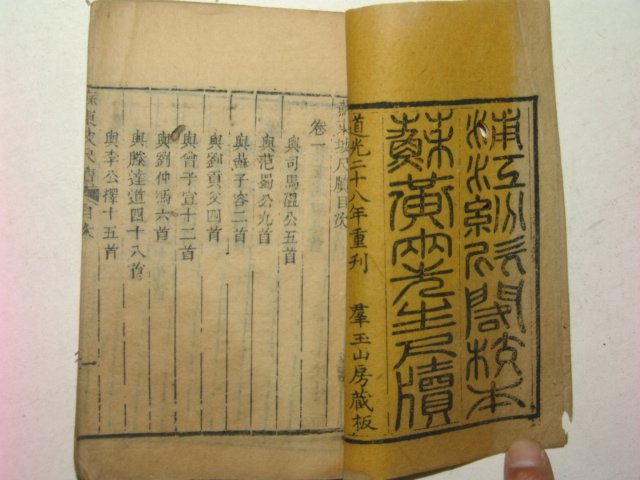 浦江紛欣閣校本
蘇黃兩先生尺牘
道光二十八年重刊 羣玉山房藏板
蘇東坡尺牘目次
卷一
與司馬溫公五首
與范蜀公九首
與蘇子容二首
與劉貢父四首
與曾子宣十二首
與劉仲馮六首
與滕達道四十八首
與李公擇十五首
蘇東坡尺牘 目次 一